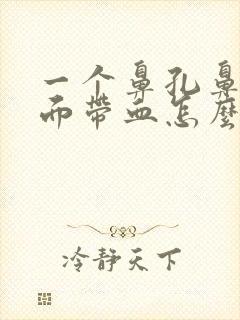 一个鼻孔鼻
而带血怎麼
冷静天下